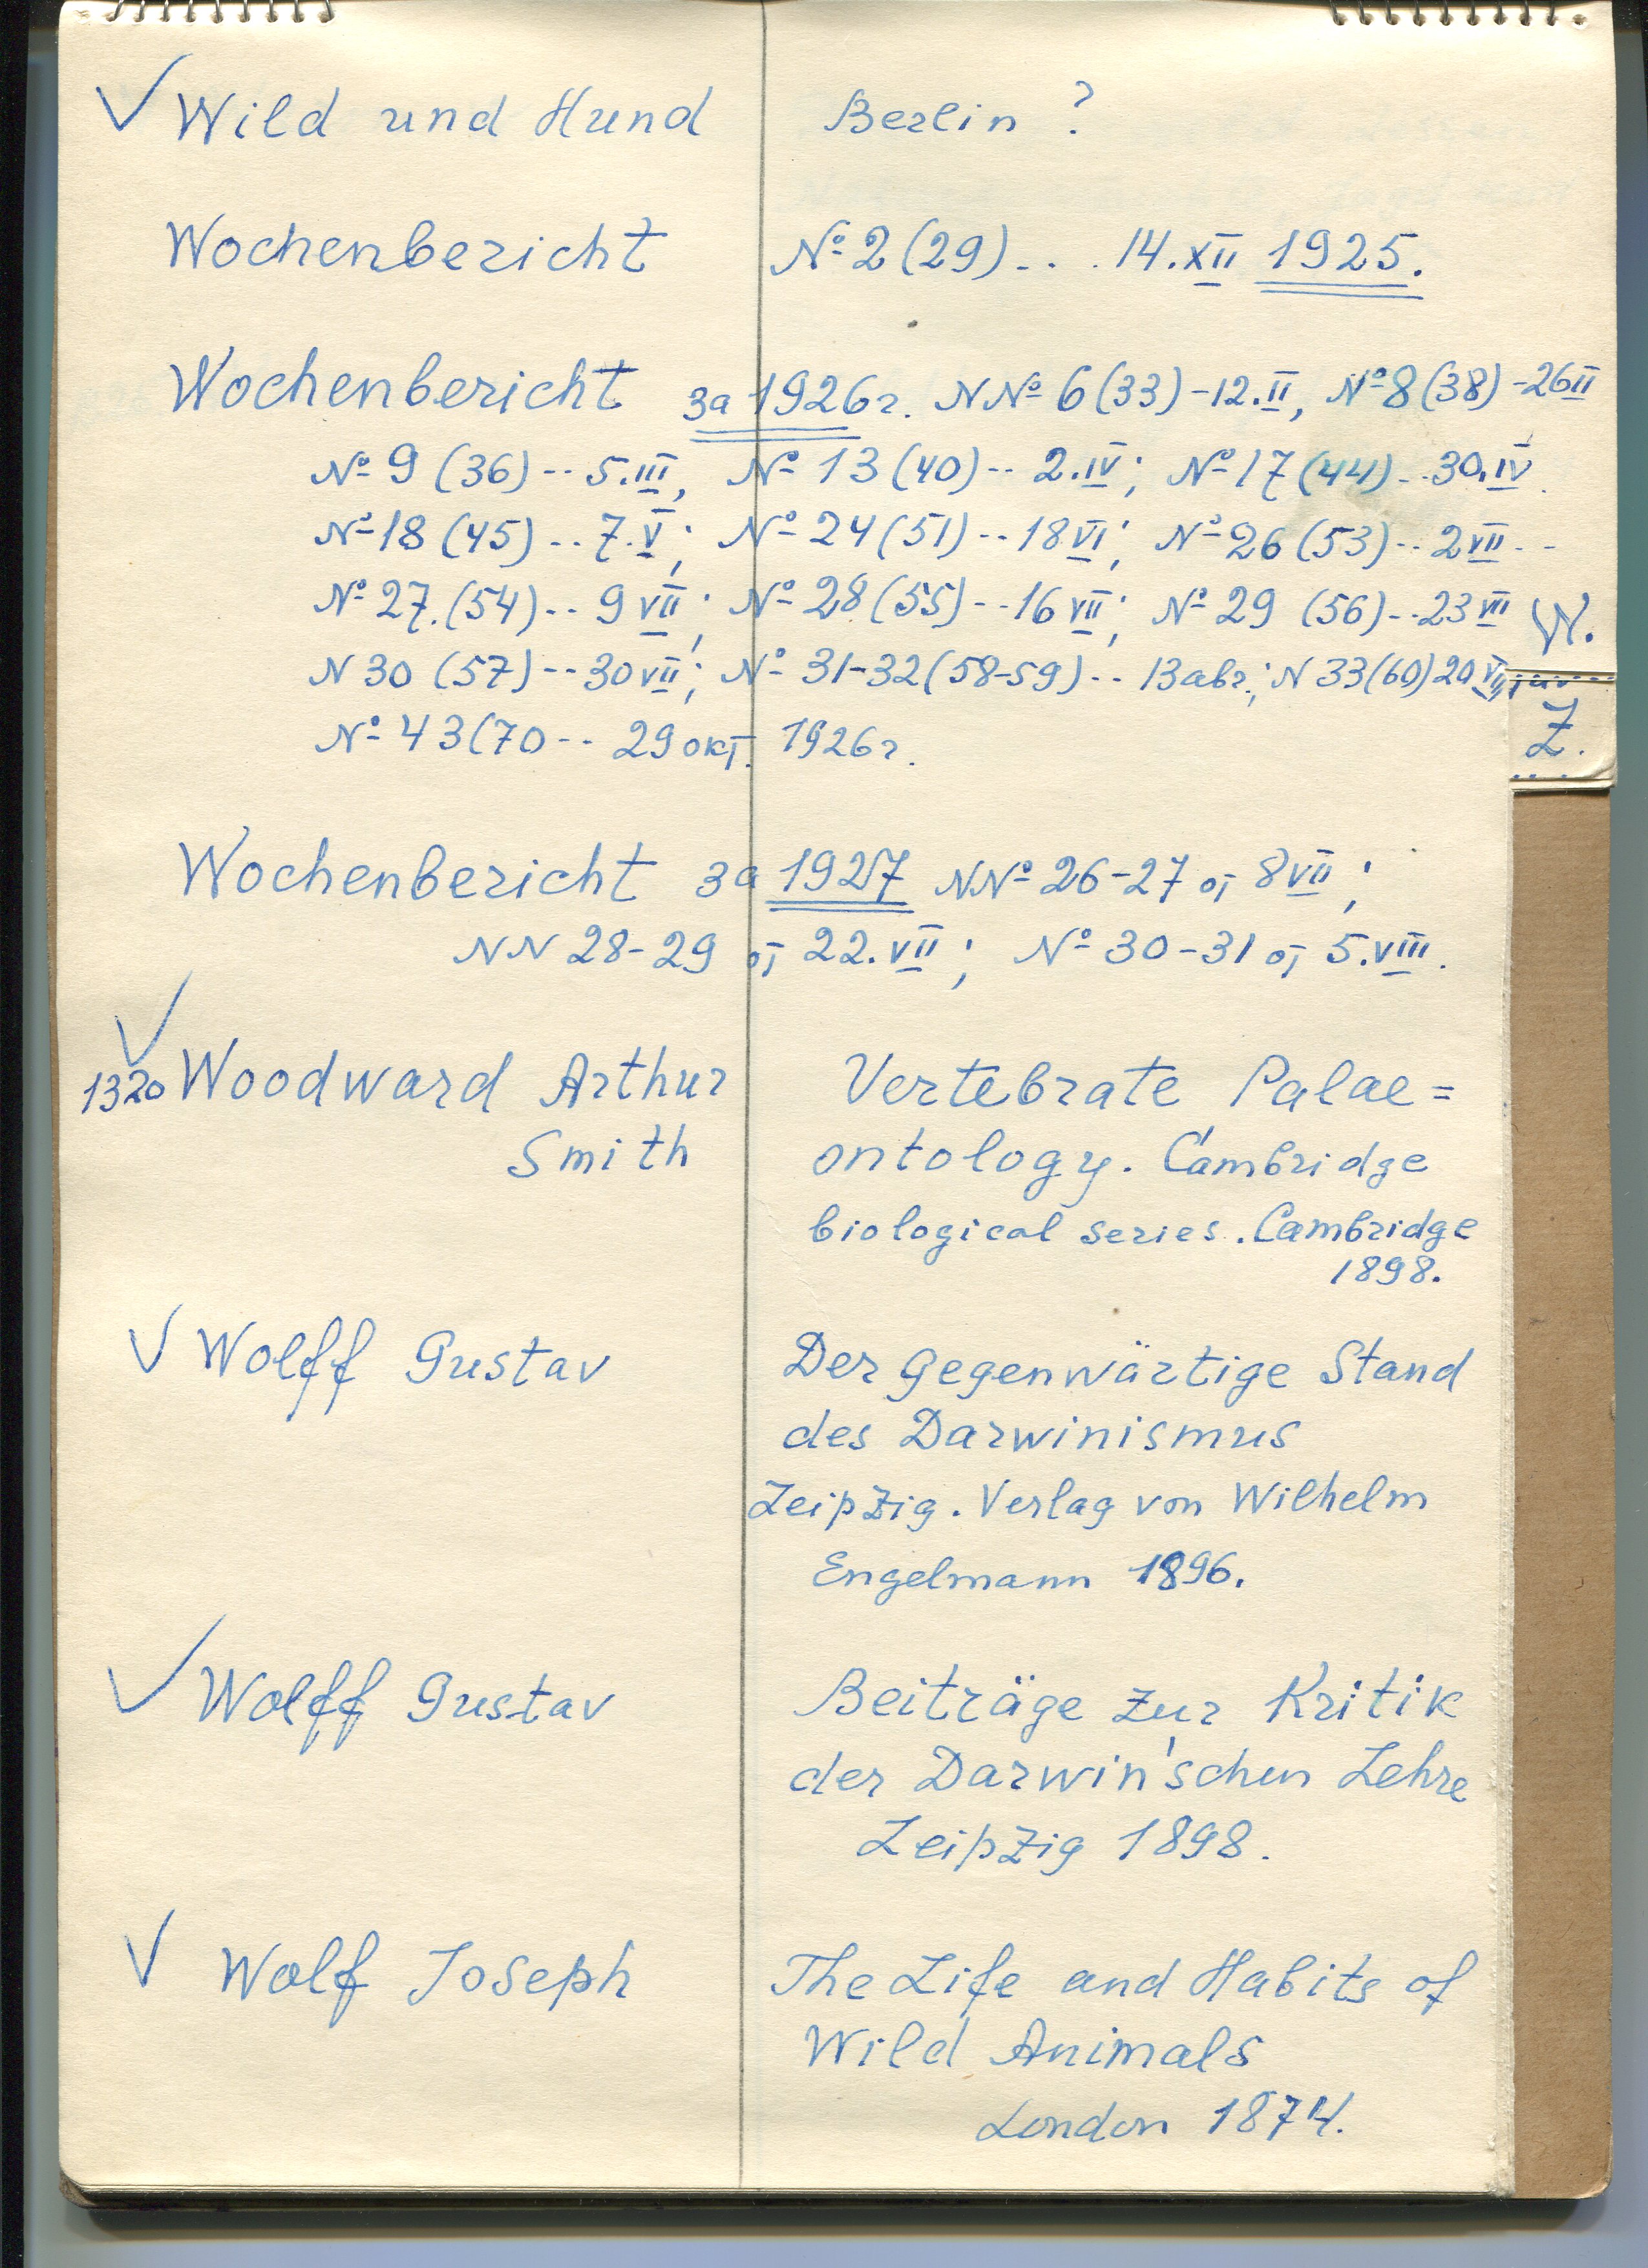 Wild und Hund Berlin ?
Wochenbericht № 2 (29) - . . 14.XII 1925.
Wochenbericht за 1926 г. N№ 6 (33) - 12.II, № 8 (38) - 26 II
№ 9 (36) -- 5.III, № 13 (40) -- 2.IV; № 17 (44) -- 30.IV.
№ 18 (45) -- 7.V; № 24 (51) -- 18 VI; № 26 (53) -- 2 VII --
№ 27. (54) -- 9 VII; № 28 (55) -- 16 VII; № 29 (56) -- 23 VII
W.
N 30 (57) -- 30 VII; № 31-32 (58-59) -- 13 авг.; N 33 (60) 20
Z.
№ 43 (70 -- 29 окт. 1926 г.
Wochenbericht за 1927 N№ 26-27 от 8 VII;
NN 28-29 от 22.VII; № 30-31 от 5.VIII.
1320 Woodward Arthur Vertebrate Palae=
Smith ontology. Cambridge
biological series. Cambridge
1898.
Wolff Gustav Der gegenwärtige Stand
des Darwinismus
Leipzig. Verlag von Wilhelm
Engelmann 1896.
Wolff Gustav Beiträge zur Kritik
der Darwin'schen Lehre
Leipzig 1898.
Wolf Joseph The Life and Habits of
Wild Animals
London 1874.